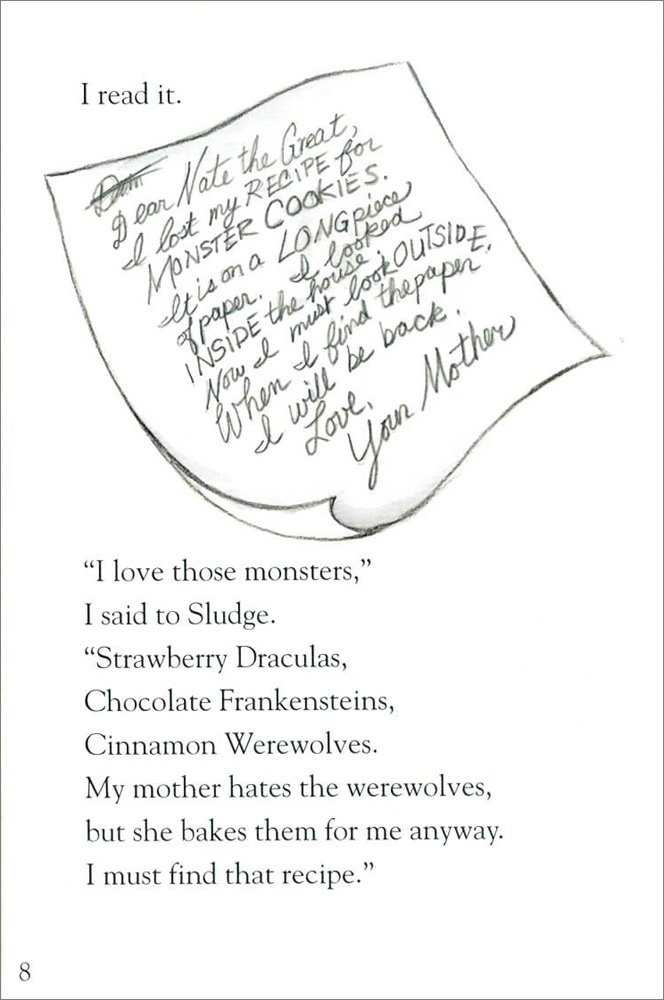 I read it.
Dear Nate the Great,
I lost my RECIPE for
MONSTER COOKIES.
It is on a LONG piece
of paper. I looked
INSIDE the house.
Now I must look OUTSIDE.
When I find the paper
I will be back.
Love,
Your Mother
“I love those monsters,”
I said to Sludge.
“Strawberry Draculas,
Chocolate Frankensteins,
Cinnamon Werewolves.
My mother hates the werewolves,
but she bakes them for me anyway.
I must find that recipe.”
8